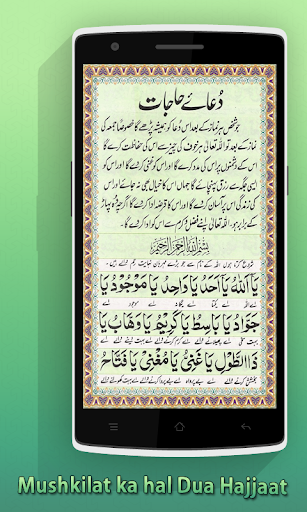 دُعائے حاجات
جو شخص ہر نماز کے بعد اس دُعا کو ہمیشہ پڑھے گا خصوصًا جمعہ کی
نماز کے بعد تو اللہ تعالٰی ہر خوف کی چیز سے اس کی حفاظت کرے گا
اس کے دشمنوں پر اس کی مدد کرے گا اور اس کو غنی کرے گا اور اس کو
ایسی جگہ سے رزق پہنچائے گا جہاں اس کا خیال بھی نہ جائے گا اور اس
کی زندگی اس پر آسان کرے گا اور اس کا قرضہ ادا کرے گا اگرچہ پہاڑ
کے برابر ہو۔ اللہ تعالٰی اپنے فضل و کرم سے اس کو ادا کرے گا۔
بِسْمِ اللهِ الرَّحْمٰنِ الرَّحِيْمِ
شروع کرتا ہوں اللہ کے نام سے جو بڑے مہربان نہایت رحم والے ہیں
يَا اَللهُ يَا اَحَدُ يَا وَاحِدُ يَا مَوْجُوْدُ يَا
اے اللہ اے یکتا اے یگانہ اے موجود اے
جَوَّادُ يَا بَاسِطُ يَا كَرِيْمُ يَا وَهَّابُ يَا
ذَا الطَّوْلِ يَا غَنِيُّ يَا مُغْنِيُّ يَا فَتَّاحُ
Mushkilat ka hal Dua Hajjaat